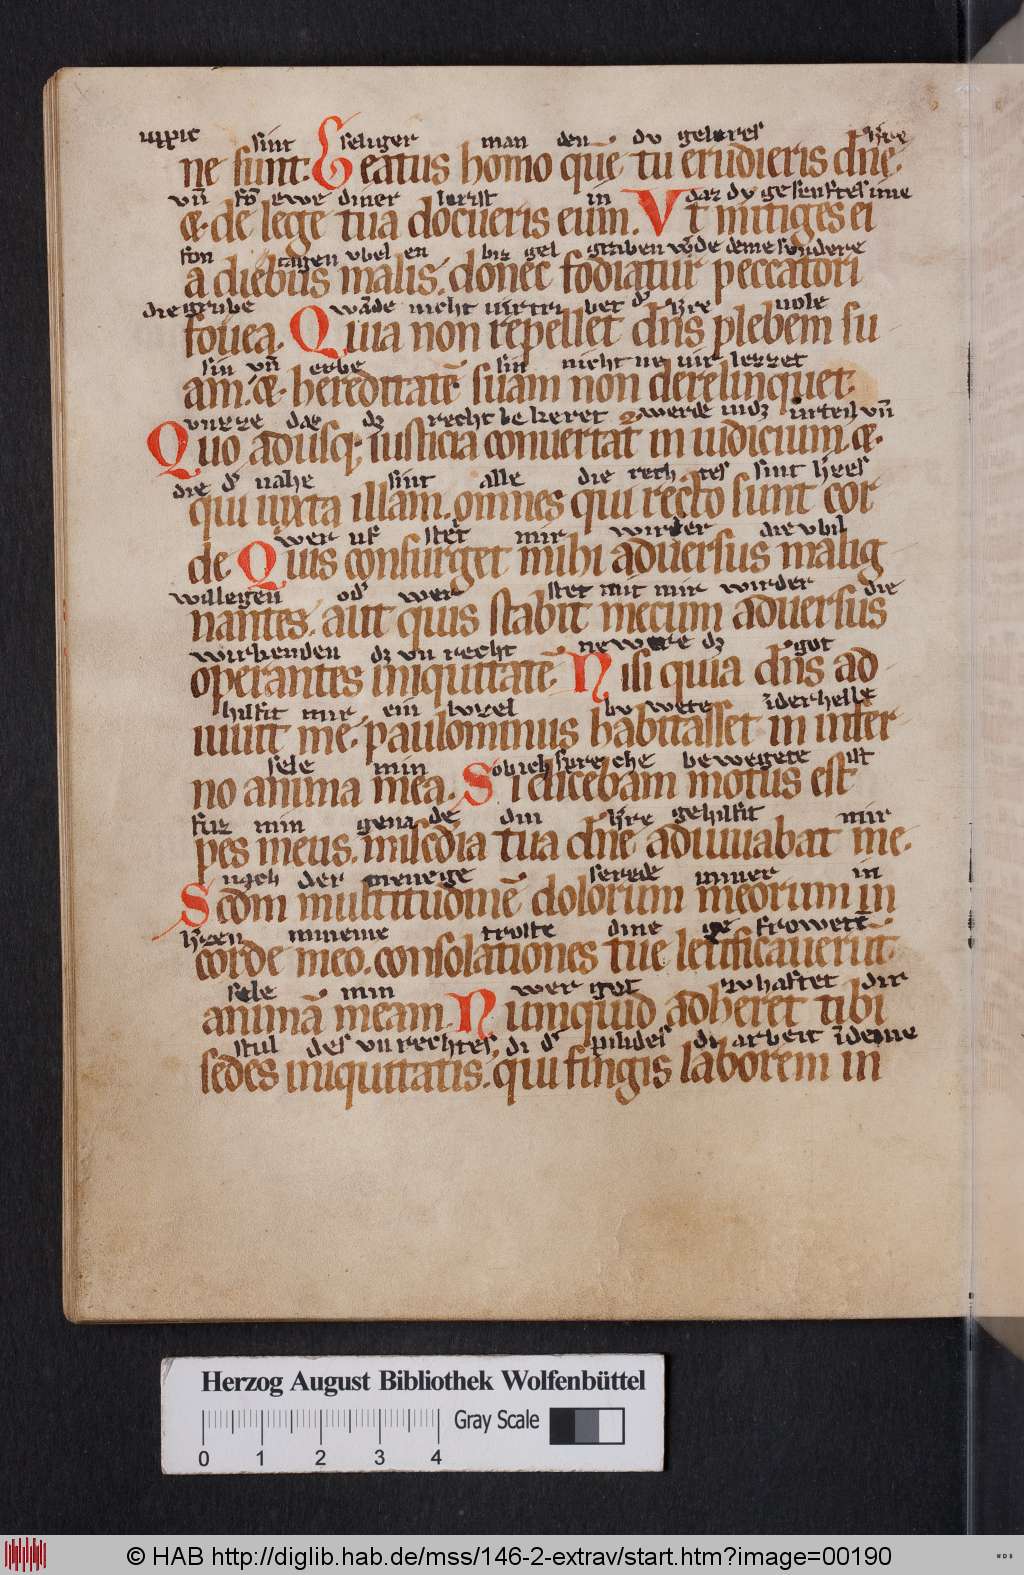 uppic sint seliger man den du geleres h̄re
ne sunt: Beatus homo quē tu erudieris dn̄e.
vn̄ fō ewe diner lerist in daz dy gesenftes ime
&. de lege tua docueris eum. Vt mitiges ei
fon tagen vbel en biz gel graben w̄de deme sundere
a diebus malis. donec fodiatur peccatori
die grube wāde nicht uirtri bet d̛ h̄re uole
fouea. Quia non repellet dn̄s plebem su
sin vn̄ erbe sin nicht ne uir lezzet
am. &. hereditatē suam non derelinquet.
vnzze daz dz recht bekeret werde in dz urteil vn̄
Quo adusq; iusticia conuertat in iudicium. &.
die d̛ nahe sint alle die rech tes sint h̄ces
qui iuxta illam. omnes qui recto sunt cor
wer uf stet mir wirder die vbil
de. Quis consurget mihi aduersus malig
willegen od̛ wer stet mit mir wirder die
nantes. aut quis stabit mecum aduersus
wirkenden dz vn recht ne were dz got
operantes iniquitatē. Nisi quia dn̄s ad
hilfit mir ein luzel bu wete īderhelle
iuuit me. paulominus habitasset in infer
sele min ob ich spre che bewegete ist
no anima mea. Si dicebam motus est
fuz min gena de din h̄re gehilfit mir
pes meus. mis̄cdia tua dn̄e adiuuabat me.
nach der meneige serede miner in
Scdm multitudinē dolorum meorum in
h̄zen mineme troste dine ge frowetē
corde meo. consolationes tue letificauerut
sele min wer got zv haftet dir
animā meam. Numquid adheret tibi
stul des vn rechtes, di d̛ pilides di arbeit īdeme
sedes iniquitatis. qui fingis laborem in
Herzog August Bibliothek Wolfenbüttel
Gray Scale
0 1 2 3 4
© HAB http://diglib.hab.de/mss/146-2-extrav/start.htm?image=00190